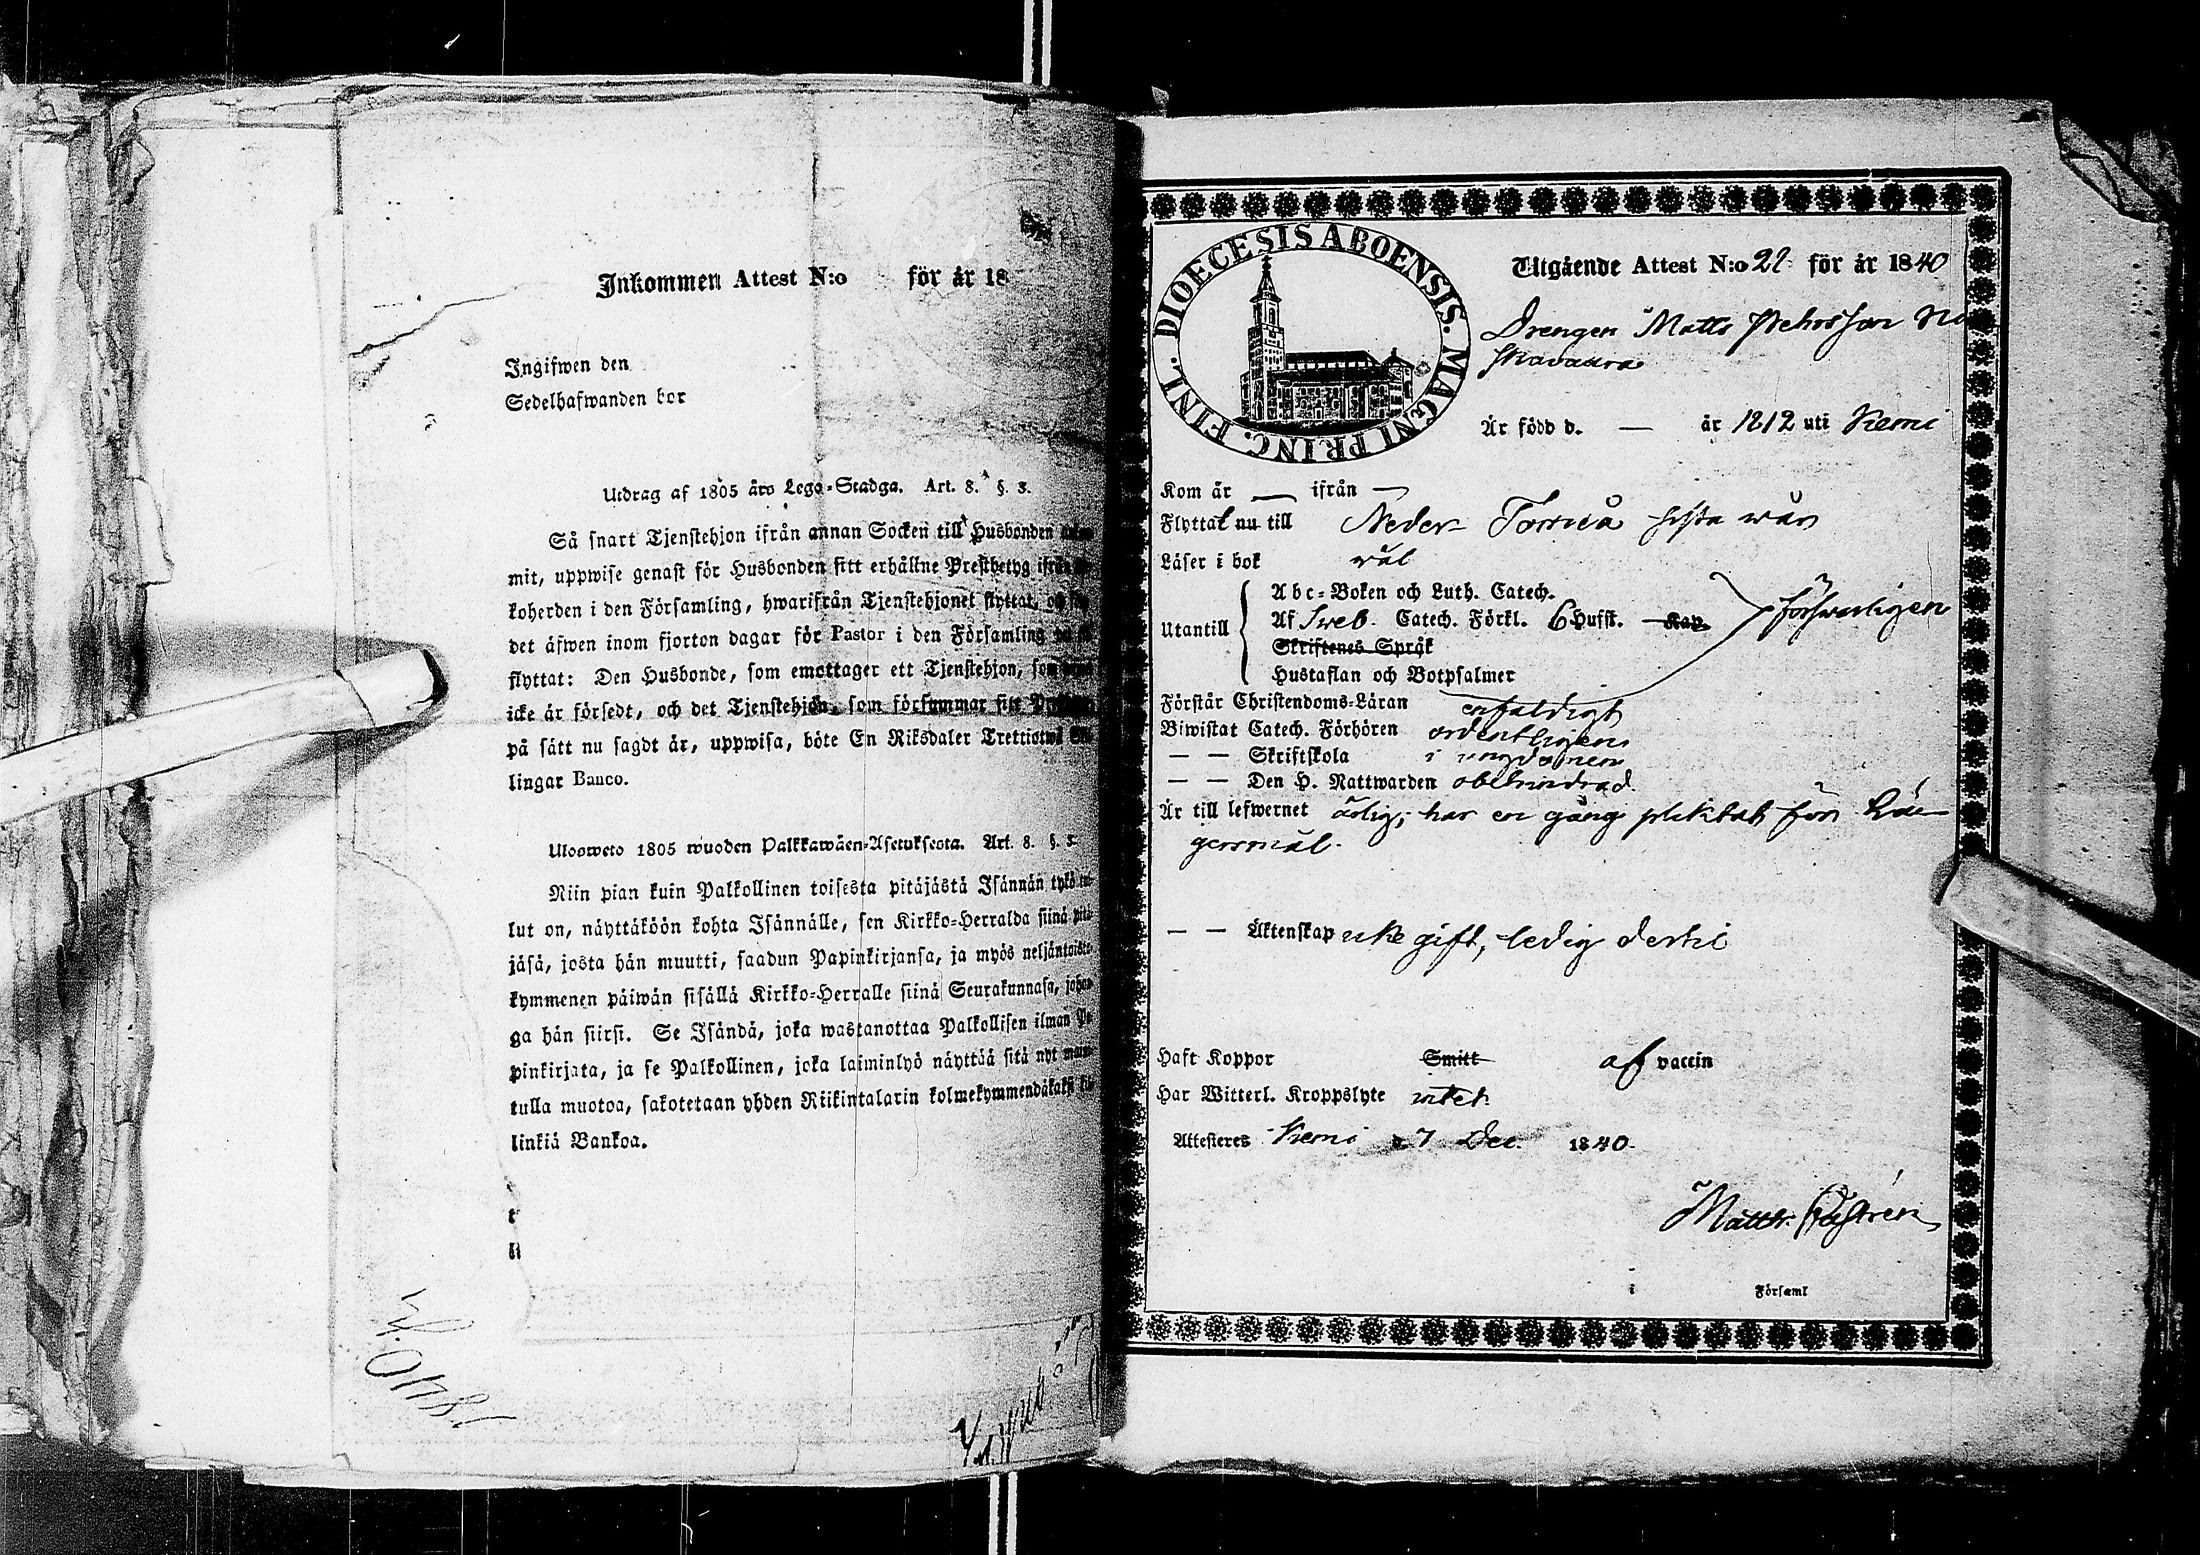 Inkommen Attest N:o för år 18
Ingifwen den
Sedelhafwanden bor
Utdrag af 1805 års Lego-Stadga. Art. 8. §. 3.
Så snart Tjenstehjon ifrån annan Socken till Husbonden
mit, uppwise genast för Husbonden sitt erhållne Presthetyg ifrån
koherden i den Församling, hwarifrån Tjenstehjonet flyttat, och
det äfwen inom fjorton dagar för Pastor i den Församling
flyttat: Den Husbonde, som emottager ett Tjenstehjon, som
icke är försedt, och det Tjenstehjon, som försummar sitt
på sätt nu sagdt är, uppwisa, böte En Riksdaler Trettiotwå
lingar Banco.
Ulosweto 1805 wuoden Palkkawäen-Asetuksesta. Art. 8. §. 3.
Niin pian kuin Palkollinen toisesta pitäjästä Isännän tykö
lut on, näyttäköön kohta Isännälle, sen Kirkko-Herralda siinä pitä-
jäsä, josta hän muutti, saadun Papinkirjansa, ja myös neljäntoista-
kymmenen päiwän sisällä Kirkko-Herralle siinä Seurakunnasa, johon-
ga hän siirsi. Se Isändä, joka wastanottaa Palkollisen ilman Pa-
pinkirjata, ja se Palkollinen, joka laiminlyö näyttää sitä nyt
tulla muotoa, sakotetaan yhden Riikintalarin kolmekymmendäkaksi
linkiä Bankoa.
t
li
1840.
DIOECESIS ABOENSIS. MAGNI PRINC. FINL.
Utgående Attest N:o 22 för år 1840
Drengen Matts Pehrsson
Är född d. — år 1812 uti Kemi
Kom år — ifrån —
Flyttat nu till Neder Torneå sista wår
Läser i bok wäl
Utantill
Abc-Boken och Luth. Catech.
Af Sweb. Catech. Förkl. 6 Hufst. Kap.
Skriftenes Språk
Hustaflan och Botpsalmer
försvarligen
Förstår Christendoms-Läran enfaldigt
Biwistat Catech. Förhören ordentligen
— — Skriftskola i ungdomen
— — Den H. Nattwarden obehindrad.
Är till lefwernet ärlig; har en gång pliktat för Lä-
gersmål.
— — Äktenskap icke gift, ledig dertil
Haft Koppor Smitt af vaccin
Har Witterl. Kroppslyte intet
Attesteres Kemi d 7 Dec. 1840.
Matth. Castrén
i Församl